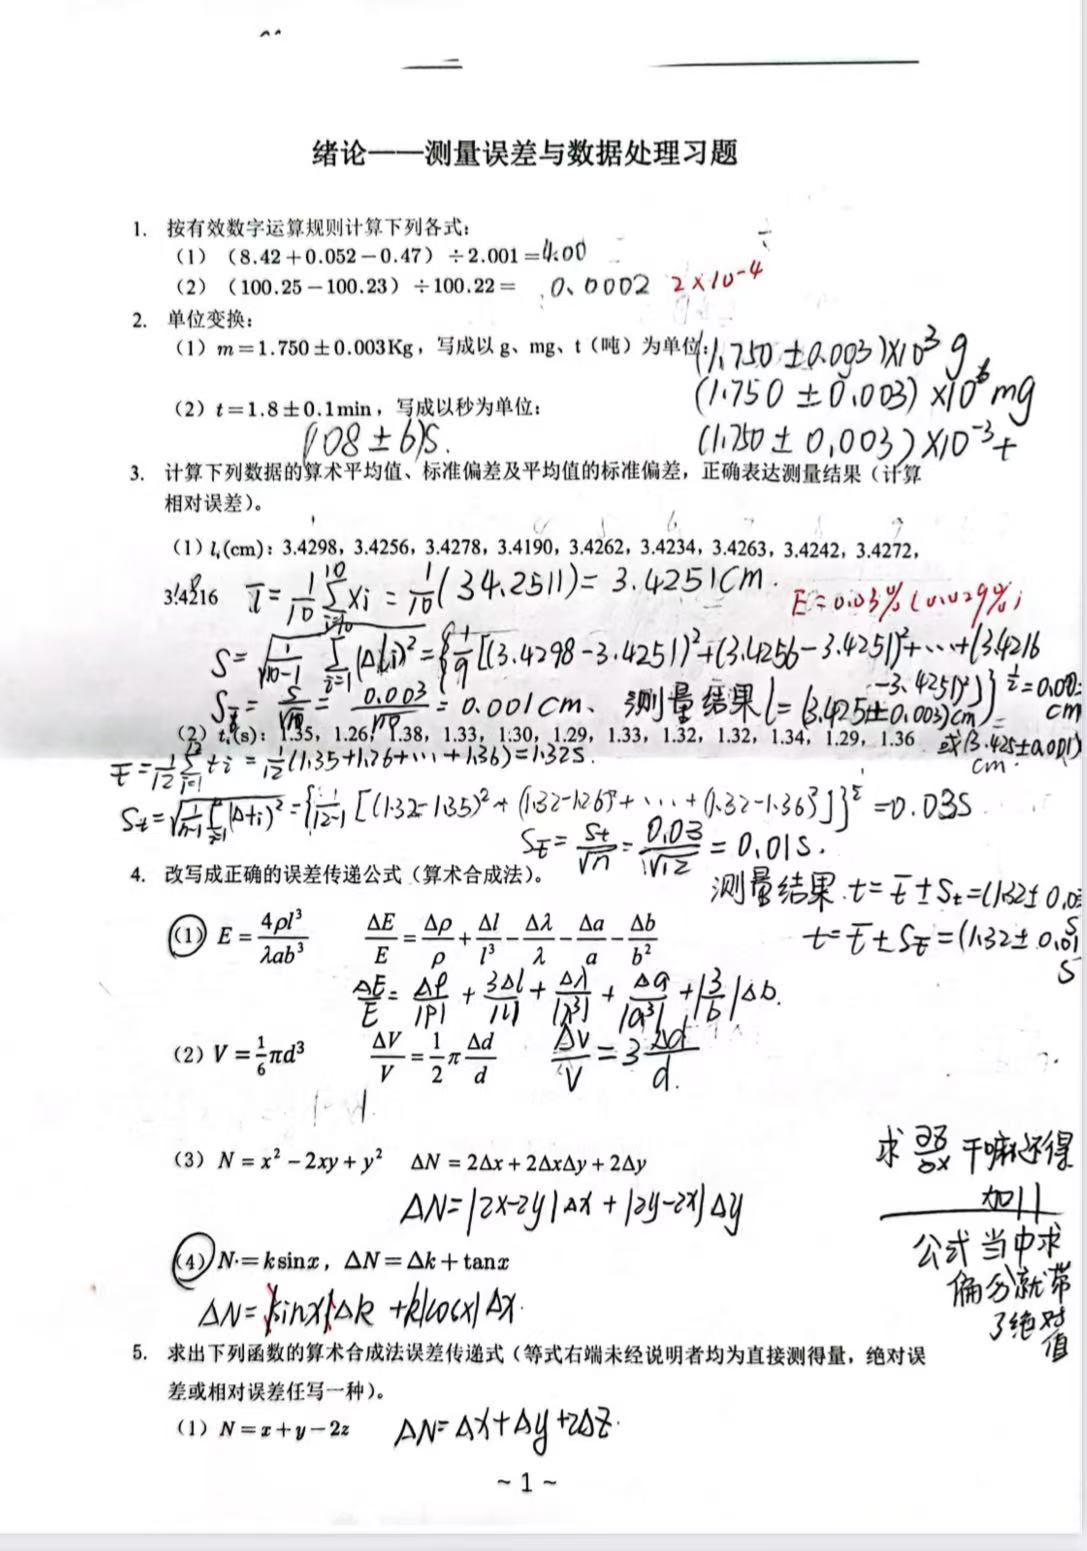 绪论——测量误差与数据处理习题
1. 按有效数字运算规则计算下列各式：
（1）（8.42＋0.052－0.47）÷2.001＝4.00
（2）（100.25－100.23）÷100.22＝ 0.0002 2×10⁻⁴
2. 单位变换：
（1）m＝1.750±0.003Kg，写成以 g、mg、t（吨）为单位：(1.750±0.003)×10³ g
(1.750±0.003)×10⁶ mg
（2）t＝1.8±0.1min，写成以秒为单位：
(108±6)S.
(1.750±0.003)×10⁻³ t
3. 计算下列数据的算术平均值、标准偏差及平均值的标准偏差，正确表达测量结果（计算
相对误差）。
（1）lᵢ(cm)：3.4298，3.4256，3.4278，3.4190，3.4262，3.4234，3.4263，3.4242，3.4272，
3.4216 l̄ = 1/10 Σxi = 1/10(34.2511) = 3.4251cm.
E=0.03% (0.029%)
S=√(1/(10-1) Σ(Δli)²) = {1/9[(3.4298-3.4251)²+(3.4256-3.4251)²+…+(3.4216
-3.4251)²]}^½
S_l̄ = S/√10 = 0.003/√10 = 0.001cm、 测量结果 l=(3.425±0.003)cm
（2）tᵢ(s)：1.35，1.26，1.38，1.33，1.30，1.29，1.33，1.32，1.32，1.34，1.29，1.36
或(3.425±0.001)
cm.
t̄ = 1/12 Σti = 1/12(1.35+1.26+…+1.36)=1.32S.
St=√(1/(n-1) Σ(Δti)²) = {1/(12-1)[(1.32-1.35)²+(1.32-1.26)²+…+(1.32-1.36)²]}^½ =0.03S
St̄ = St/√n = 0.03/√12 = 0.01S.
4. 改写成正确的误差传递公式（算术合成法）。
测量结果 t=t̄±St=(1.32±0.03
S
（1）E = 4ρl³/λab³ ΔE/E = Δρ/ρ + Δl/l³ − Δλ/λ − Δa/a − Δb/b²
t=t̄±St̄=(1.32±0.01
S
ΔE/E = Δρ/|ρ| + 3Δl/|l| + Δλ/|λ³| + Δa/|a³| + |3/b|Δb.
（2）V = 1/6 πd³ ΔV/V = 1/2 π Δd/d ΔV/V = 3 Δd/d.
（3）N = x² − 2xy + y² ΔN = 2Δx + 2ΔxΔy + 2Δy
ΔN=|2x-2y|Δx + |2y-2x|Δy
求 ∂z/∂x 干嘛还得
加||
公式当中求
偏分就带
了绝对
值
（4）N = ksinx，ΔN = Δk + tanx
ΔN=|sinx|Δk + k|cosx|Δx.
5. 求出下列函数的算术合成法误差传递式（等式右端未经说明者均为直接测得量，绝对误
差或相对误差任写一种）。
（1）N = x + y − 2z ΔN=Δx+Δy+2Δz.
~ 1 ~